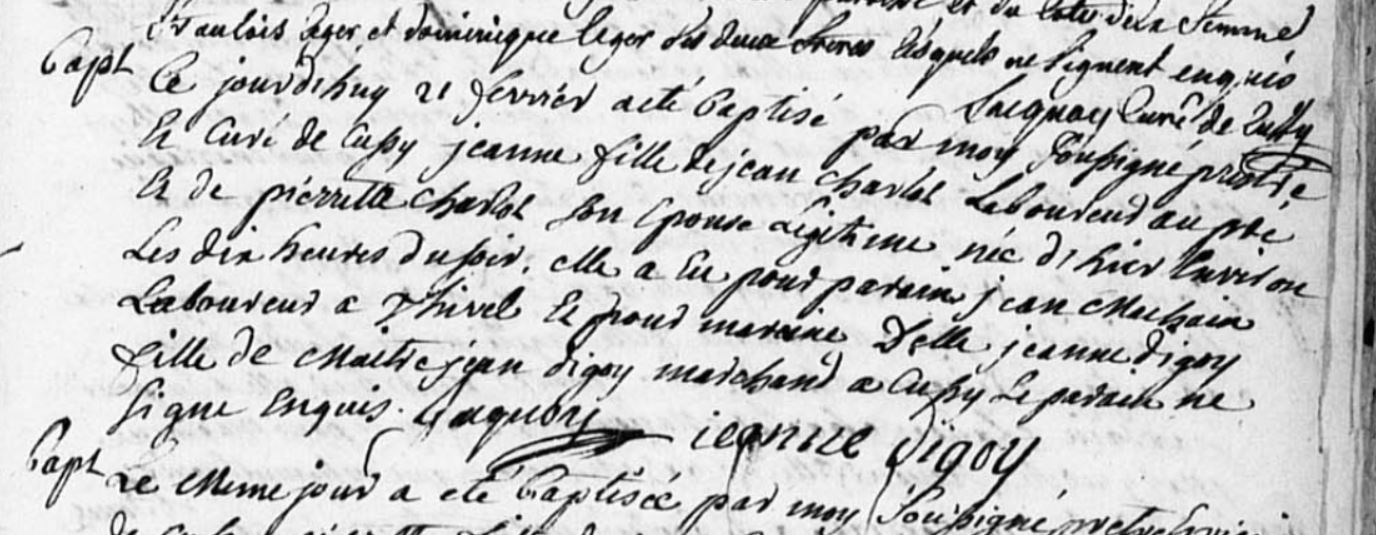 et du coté de la femme
francois leger et dominique leger ses deux freres lesquels ne signent enquis
Bapt
Jacquary Curé de Cussy
Ce jourdhuy 21 fevrier a eté baptisé par moy soussigné prestre
Et Curé de Cussy jeanne fille de jean charlot Laboureur au
Et de pierrette charlot son epouse Legitime née d'hier Environ
Les dix heures du soir. elle a Eu pour parain jean Machain
Laboureur a Et pour maraine Delle jeanne digoy
fille de Maitre jean digoy marchand a Cussy Le parain ne
signe Enquis. jeanne digoy
Bapt
Le Meme jour a eté baptisée par moy soussigné